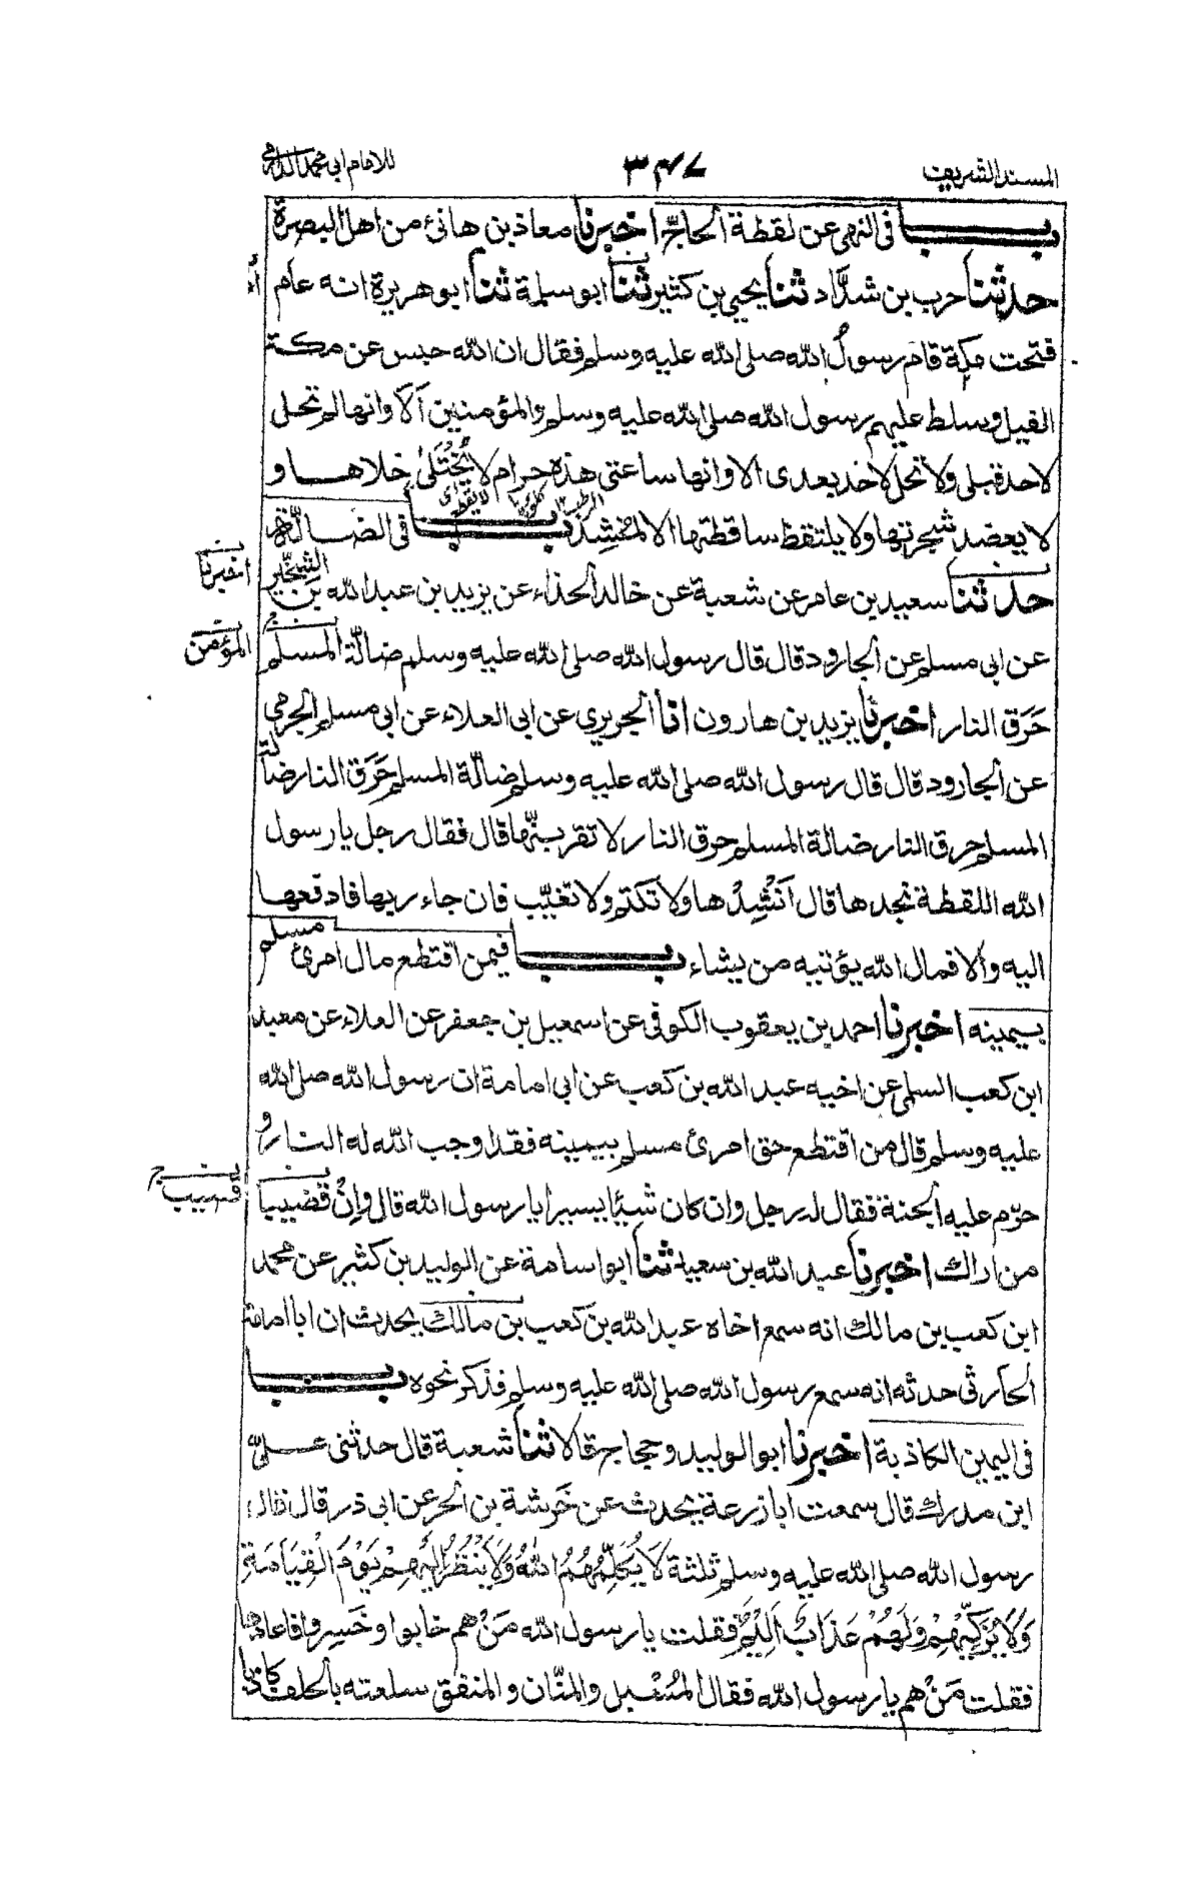 المسند الشريف ٣٤٧ للامام ابى محمد الدارمى
بــــاب فى النهى عن لقطة الحاجّ اخبرنا معاذ بن هانئ من اهل البصرة
حدثنا حرب بن شدّاد ثنا يحيى بن كثير ثنا ابو سلمة ثنا ابو هريرة انه عام
فتحت مكة قام رسولُ الله صلى الله عليه وسلم فقال ان الله حبس عن مكة
الفيل وسلط عليهم رسول الله صلى الله عليه وسلم والمؤمنين ألا وانها لم تحل
لاحد قبلى ولا تحل لاحد بعدى الا وانها ساعتى هذه حرام لا يُخْتَلىٰ خلاها و
الرطب لا يقطع
لا يعضد شجرتها ولا يلتقط ساقطتها الا لمنشِد بــــاب فى الضــالّة
حدثنا سعيد بن عامر عن شعبة عن خالد الحذاء عن يزيد بن عبد الله بن الشخّير
اخبرنا
عن ابى مسلم عن الجارود قال قال رسول الله صلى الله عليه وسلم ضالّة المسلم
المؤمن
حَرَق النار اخبرنا يزيد بن هارون انا الجريرى عن ابى العلاء عن ابى مسلم الجرمى
عن الجارود قال قال رسول الله صلى الله عليه وسلم ضالّة المسلم حَرَق النار ضالّة
المسلم حرق النار ضالة المسلم حرق النار لا تقربنّها قال فقال رجل يا رسول
الله اللقطة نجدها قال اَنْشِدْها ولا تكتم ولا تغيّب فان جاء ربها فادفعها
اليه والا فمال الله يؤتيه من يشاء بــــاب فيمن اقتطع مال امرئ مسلم
بيمينه اخبرنا احمد بن يعقوب الكوفى عن اسمعيل بن جعفر عن العلاء عن معبد
ابن كعب السلمى عن اخيه عبد الله بن كعب عن ابى امامة ان رسول الله صلى الله
عليه وسلم قال من اقتطع حق امرئ مسلم بيمينه فقد اوجب الله له النار و
حرّم عليه الجنة فقال له رجل وان كان شيئا يسيرا يا رسول الله قال وان قضيبا
قضيب
من اراك اخبرنا عبد الله بن سعيد ثنا ابو اسامة عن الوليد بن كثير عن محمد
ابن كعب بن مالك انه سمع اخاه عبد الله بن كعب بن مالك يحدث ان ابا امامة
الحارثى حدثه انه سمع رسول الله صلى الله عليه وسلم فذكر نحوه بــــاب
فى اليمين الكاذبة اخبرنا ابو الوليد وحجاج قالا ثنا شعبة قال حدثنى علىّ
ابن مدرك قال سمعت ابا زرعة يحدث عن خَرشة بن الحر عن ابى ذر قال قال
رسول الله صلى الله عليه وسلم ثلثة لَا يُكَلِّمُهُمُ اللهُ وَلَا يَنْظُرُ اِلَيْهِمْ يَوْمَ الْقِيَامَةِ
وَلَا يُزَكِّيْهِمْ وَلَهُمْ عَذَابٌ اَلِيْمٌ فقلت يا رسول الله مَنْ هم خابوا وخَسِروا فاعادها
فقلت مَنْ هم يا رسول الله فقال المُسْبِل والمنّان والمنفق سلعته بالحلف كاذبا